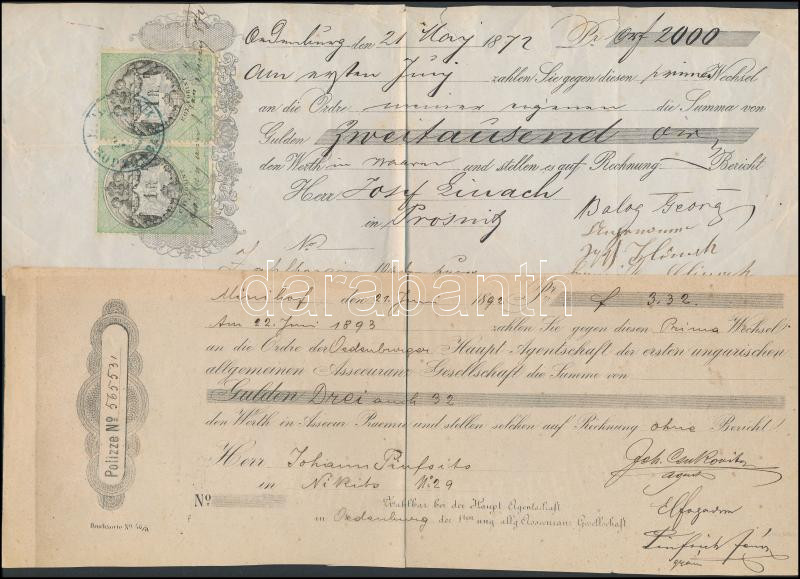 Oedenburg den 21 May 1872 Pr. ö.W. f 2000
Am ersten Juny zahlen Sie gegen diesen prima Wechsel
an die Ordre meiner eigenen die Summa von
Gulden Zweitausend ö.W.
den Werth in Waaren und stellen es auf Rechnung Bericht
Herr Josef
in Prosnitz
Balog Georg
No
darabanth
den 21. Juni 1892 Pr. f 3.32.
Am 22. Juni 1893 zahlen Sie gegen diesen Prima Wechsel
an die Ordre der Oedenburger Haupt-Agentschaft der ersten ungarischen
allgemeinen Assecuranz Gesellschaft die Summe von
Gulden Drei auch 32
den Werth in Assecur. Praemie und stellen solchen auf Rechnung ohne Bericht
Herr Johann
in Nikitsch No. 29
No
Zahlbar bei der Haupt-Agentschaft
in Oedenburg der Iten ung. allg. Assecuranz Gesellschaft
Joh. Csukovits
Agent
Elfogadom
Polizze No 565531
Drucksorte No